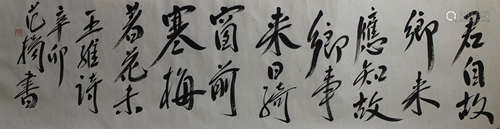 君自故
鄉来
應知故
鄉事
来日綺
窗前
寒梅
著花未
王維詩
辛卯
范楠書